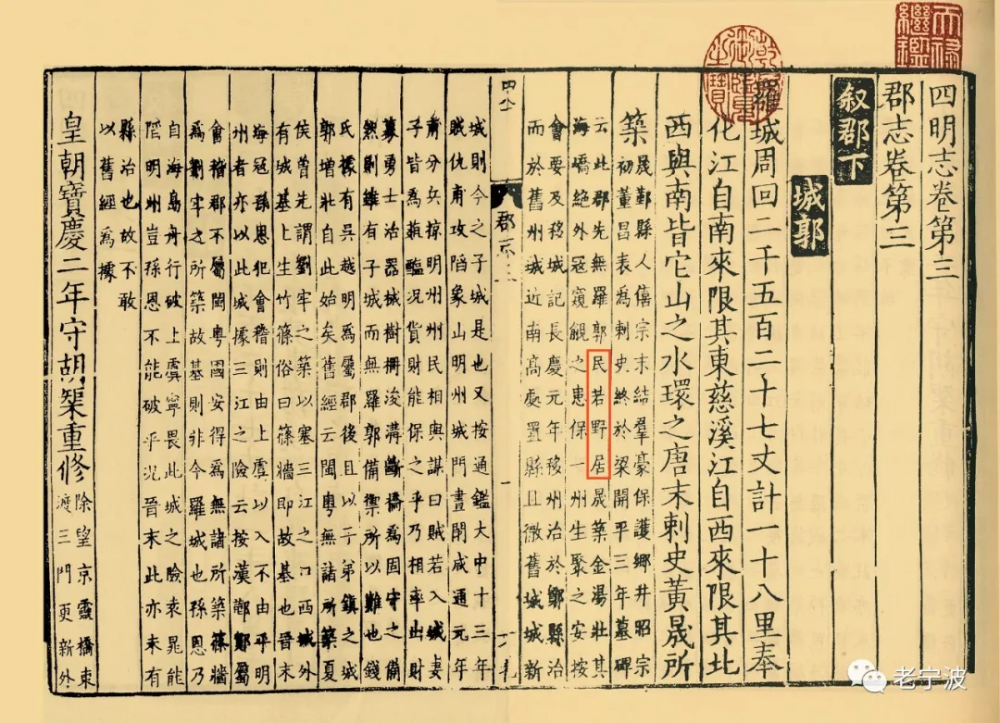 四明志卷第三
郡志卷第三
叙郡下
城郭
羅城周回二千五百二十七丈計一十八里奉
化江自南來限其東慈溪江自西來限其北
西與南皆它山之水環之唐末刺史黃晟所
築
晟鄞縣人僖宗末結羣豪保護鄉井昭宗
初董昌表爲刺史終於梁開平三年墓碑
云此郡先無羅郭民若野居晟築金湯壯其
海嶠絕外寇窺覦之患保一州生聚之安按
會要及移城記長慶元年移州治於鄮縣治
而於舊州城近南高處置縣且微舊城城新
郡志三
一
城則今之子城是也又按通鑑大中十三年
賊仇甫攻陷象山明州城門晝閉咸通元年
甫分兵掠明州州民相與謀曰賊若入城妻
子皆爲葅醢况貨財能保之乎乃相率出財
募勇士治器械樹柵浚溝斷橋爲固守之備
然則雖有子城而無羅郭備禦所以難也錢
氏據有吳越明爲屬郡後且以子弟鎮之城
郭增壯自此始矣舊經云閩粵無諸所築夏
侯曾先謂劉牢之築以塞三江之口西城外
有城基上生竹篠俗曰篠墻即故基也晉末
海寇孫恩犯會稽則由上虞以入不由乎明
州者亦以此城據三江之險云按漢鄞鄮屬
會稽郡不屬閩粵國安得爲無諸所築篠墻
爲劉牢之所築故基則非今羅城也孫恩乃
自海島舟行破上虞寧畏此城之險袁晁能
陷明州豈孫恩不能破乎况晉末此亦未有
縣治也故不敢
以舊經爲據
皇朝寶慶二年守胡榘重修
除望京靈橋東
渡三門更新外
天祿繼鑑
乾隆御覽之寶
老宁波